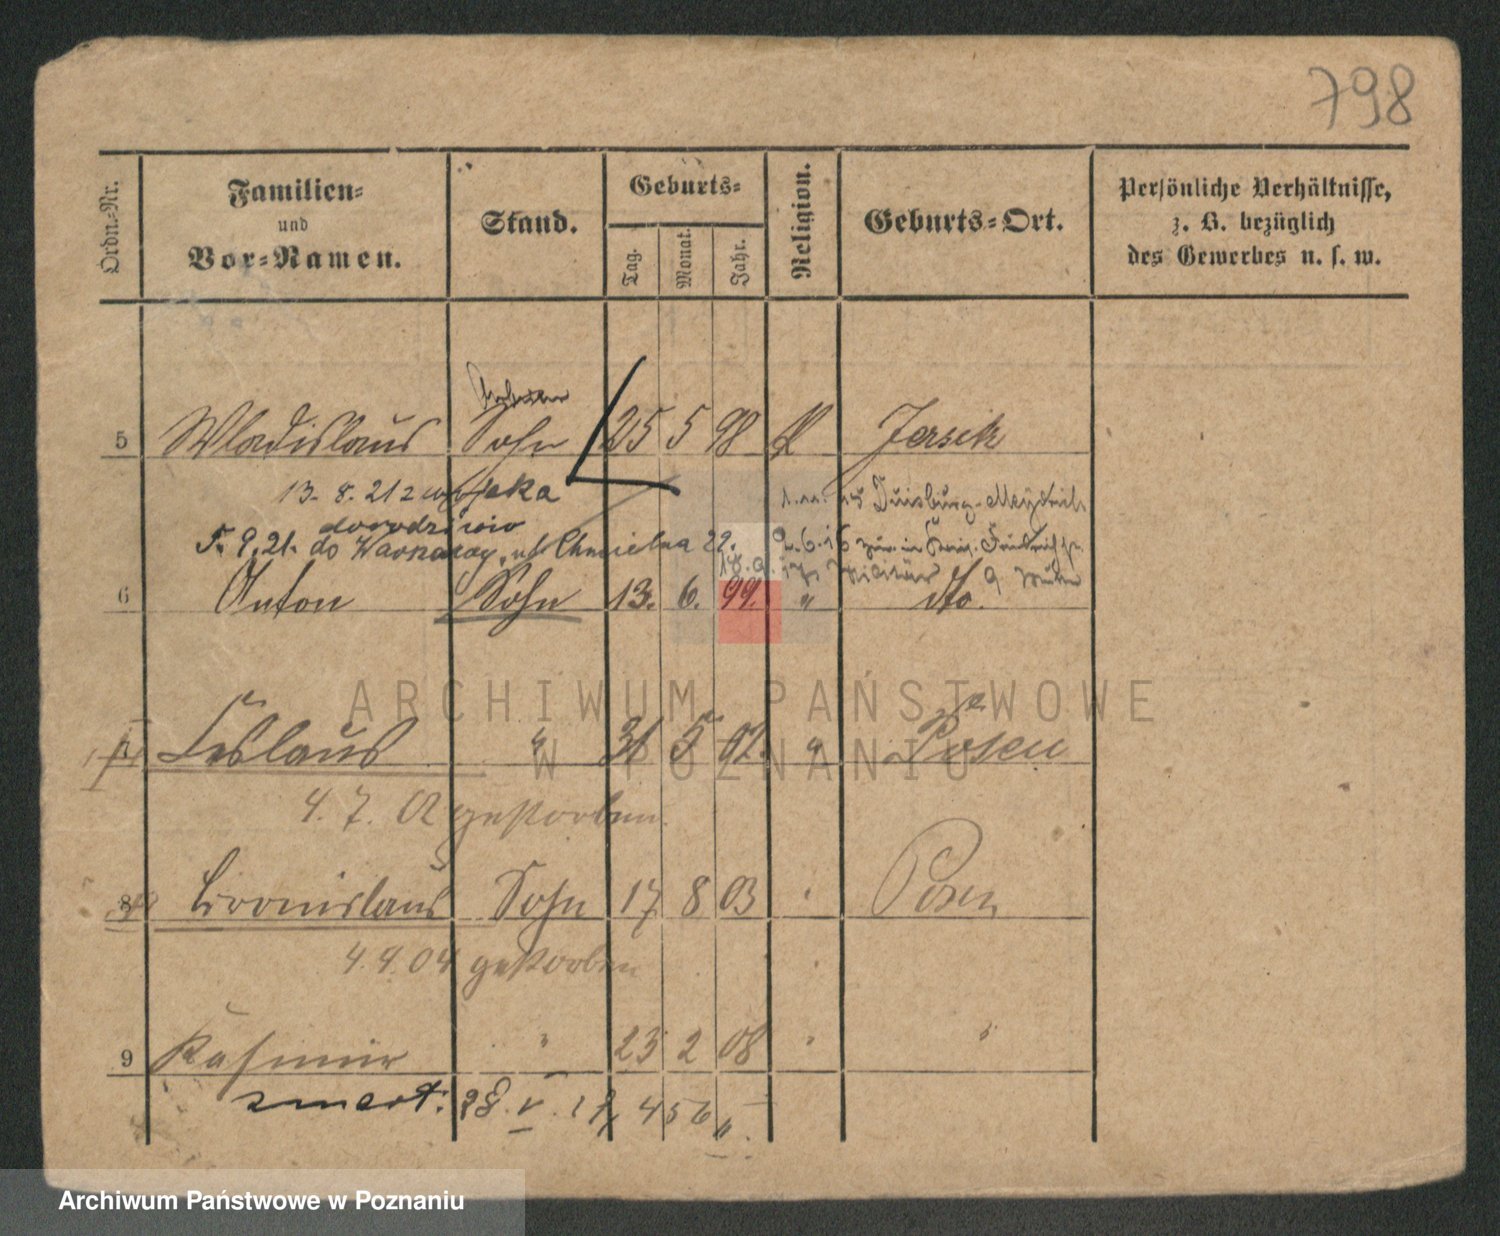 798
Ordn.-Nr.
Familien-
und
Vor-Namen.
Stand.
Geburts-
Tag.
Monat.
Jahr.
Religion.
Geburts-Ort.
Persönliche Verhältnisse,
z. B. bezüglich
des Gewerbes u. s. w.
5 Wladislaus Sohn 25 5 98 K Jersitz
13. 8. 21 z wojska
1. 11. 15 Duisburg-Meiderich
dowodziwio
5. 9. 21. do Warszawy, ul. Chmielna 22.
2. 6. 16 zur. in
18. 9. 17 Militär
6 Anton Sohn 13. 6. 99. " dto.
7 Ceslaus " 31 5 02. " Posen
4. 7. 02 gestorben.
8 Bronislaus Sohn 17 8 03 " Posen
4. 9. 04 gestorben
9 Kasimir " 23 2 08 " "
zmarł. 28. V. 456
ARCHIWUM PAŃSTWOWE
W POZNANIU
Archiwum Państwowe w Poznaniu